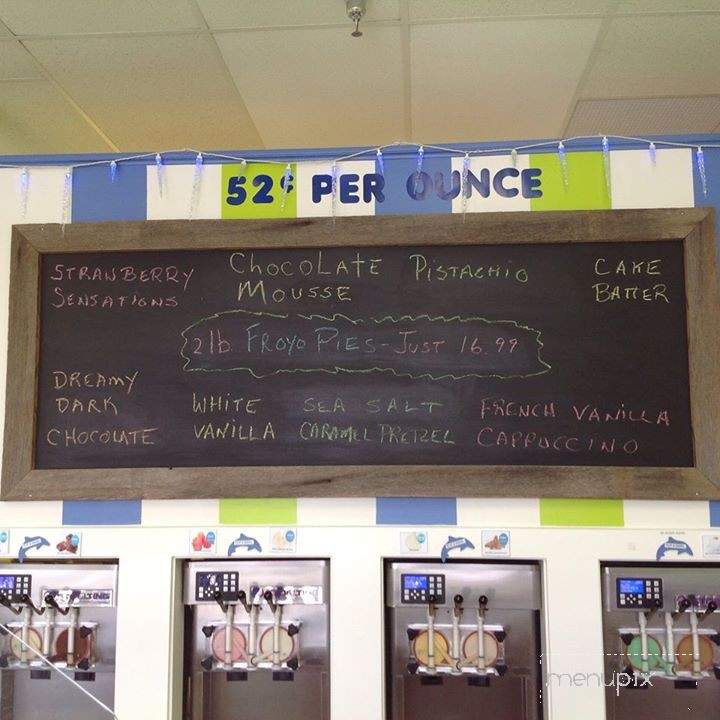 52¢ PER OUNCE
STRAWBERRY
SENSATIONS
CHOCOLATE
MOUSSE
PISTACHIO
CAKE
BATTER
2lb FROYO PIES - JUST 16.99
DREAMY
DARK
CHOCOLATE
WHITE
VANILLA
SEA SALT
CARAMEL PRETZEL
FRENCH VANILLA
CAPPUCCINO
menupix